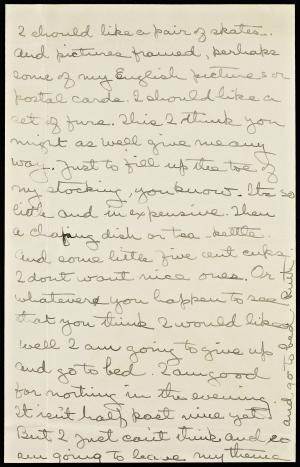 I should like a pair of skates.
And pictures framed, perhaps
some of my English pictures or
postal cards. I should like a
set of furs. This I think you
might as well give me any
way. Just to fill up the toe of
my stocking, you know. Its so
little and inexpensive. Then
a chafing dish or tea-kettle.
And some little five cent cups.
I dont want nice ones. Or
whatever you happen to see
that you think I would like.
Well I am going to give up
and go to bed. I am good
for nothing in the evening.
It isn't half past nine yet.
But I just can't think and so
am going to leave my theme
and go to bed.